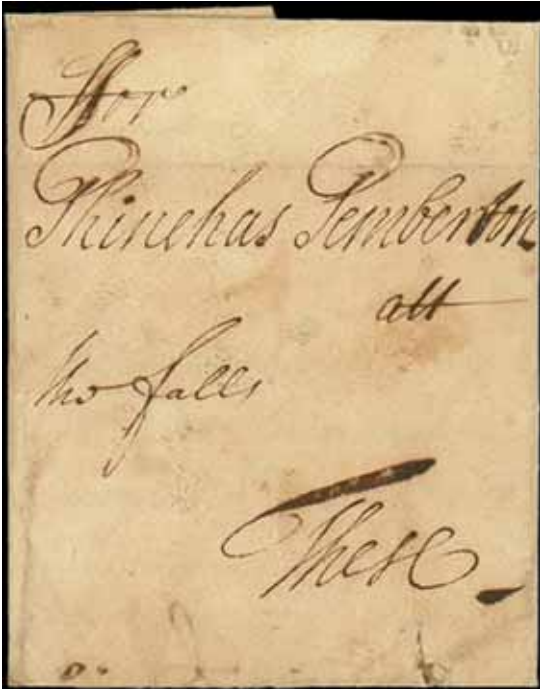 ffor
Phinehas Pemberton
att
the falls
These